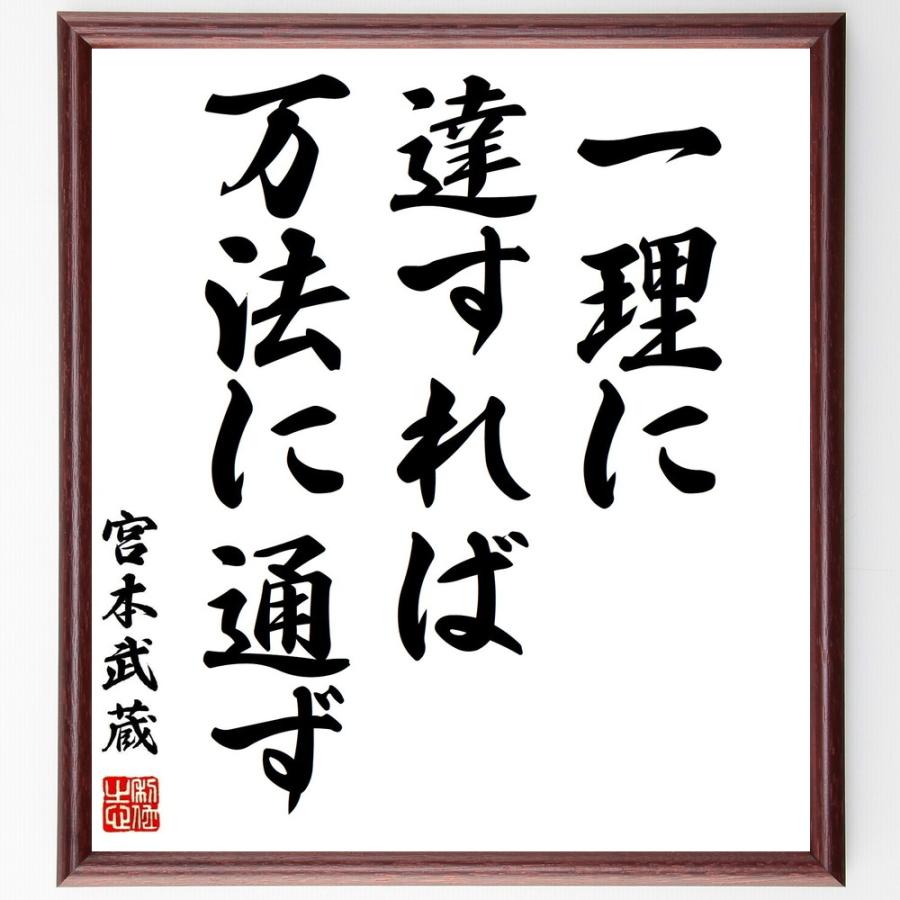 一理に
達すれば
万法に通ず
宮本武蔵